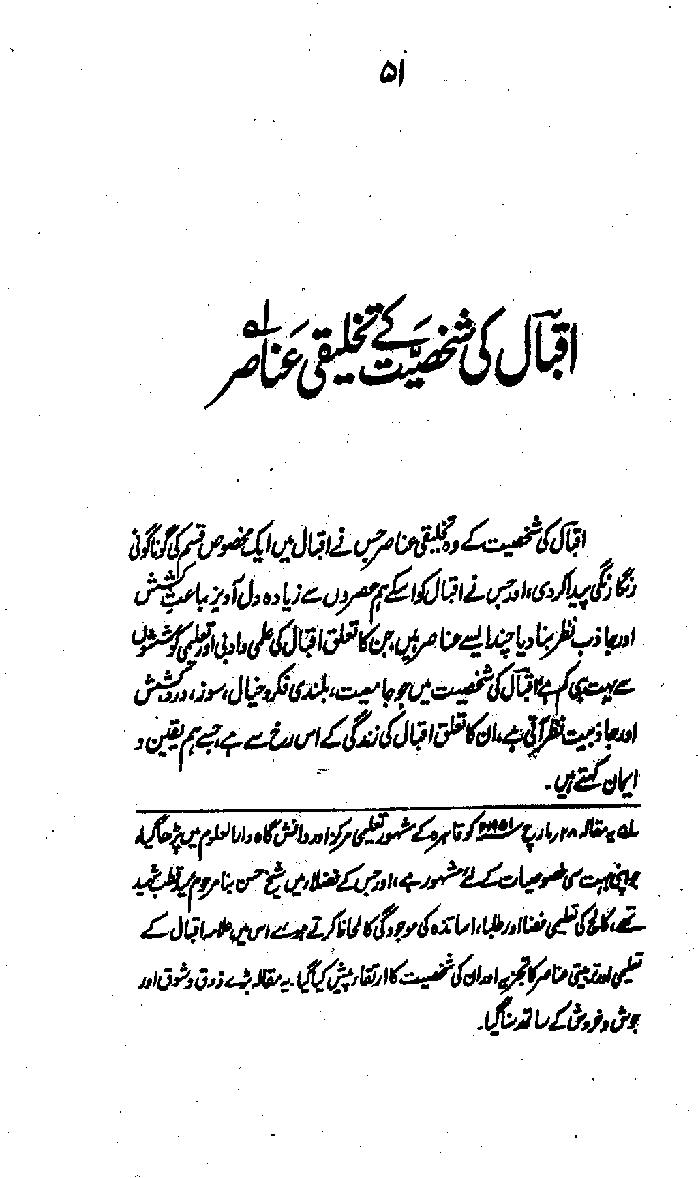 ۵۱
اقبالؔ کی شخصیّت کے تخلیقی عَناصر لے
اقبالؔ کی شخصیت کے وہ تخلیقی عناصر جس نے اقبال میں ایک مخصوص قسم کی گوناگونی
رنگا رنگی پیدا کر دی، اور جس نے اقبال کو اسکے ہم عصروں سے زیادہ دل آویز، باعث کشش
اور جاذب نظر بنا دیا چند ایسے عناصر ہیں، جن کا تعلق اقبال کی علمی و ادبی اور تعلیمی کوششوں
سے بہت ہی کم ہے، اقبالؔ کی شخصیت میں جو جامعیت، بلندی فکر و خیال، سوز، درد، کشش
اور جاذبیت نظر آتی ہے، ان کا تعلق اقبال کی زندگی کے اس رخ سے ہے، جسے ہم یقین و
ایمان کہتے ہیں۔
لے یہ مقالہ ۲۸ مارچ ۱۹۵۱ء کو قاہرہ کے مشہور تعلیمی مرکز اور دانش گاہ دارالعلوم میں پڑھا گیا،
جو اپنی بہت سی خصوصیات کے لئے مشہور ہے، اور جس کے فضلاء میں شیخ حسن بنا مرحوم سید قطب شہید
تھے، کالج کی تعلیمی فضا اور طلباء، اساتذہ کی موجودگی کا لحاظ کرتے ہوئے اس میں علامہ اقبال کے
تعلیمی اور تربیتی عناصر کا تجزیہ اور ان کی شخصیت کا ارتقاء پیش کیا گیا۔ یہ مقالہ بڑے ذوق و شوق اور
جوش و خروش کے ساتھ سنا گیا۔